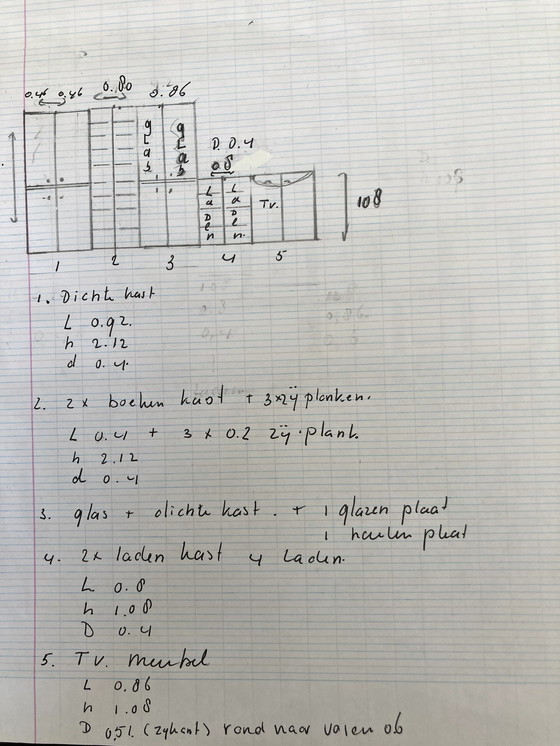 0.46 0.46 0.80 0.86
glas glas
D. 0.4
0.8
Laden Laden
Tv.
108
1 2 3 4 5
1. Dichte kast
L 0.92.
h 2.12
d 0.4.
2. 2x boeken kast + 3x zij planken.
L 0.4 + 3 x 0.2 zij.plank.
h 2.12
d 0.4
3. glas + dichte kast. + 1 glazen plaat
1 houten plaat
4. 2x laden kast 4 Laden.
L 0.8
h 1.08
D 0.4
5. Tv. meubel
L 0.86
h 1.08
D 0.51. (zijkant) rond naar voren